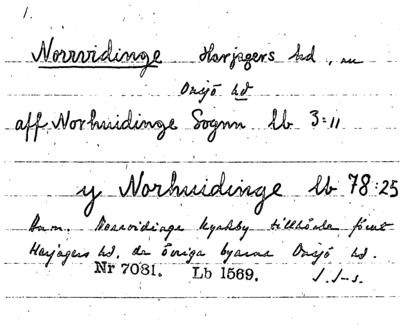 1.
Norrvidinge Harjagers hd, nu
Onsjö hd
aff Norhuidinge Sognn lb 3:11
y Norhuidinge lb 78:25
Anm. Norrvidinge kyrkby tillhörde förut
Harjagers hd. de övriga byarna Onsjö hd.
Nr 7081. Lb 1569. J.J-s.